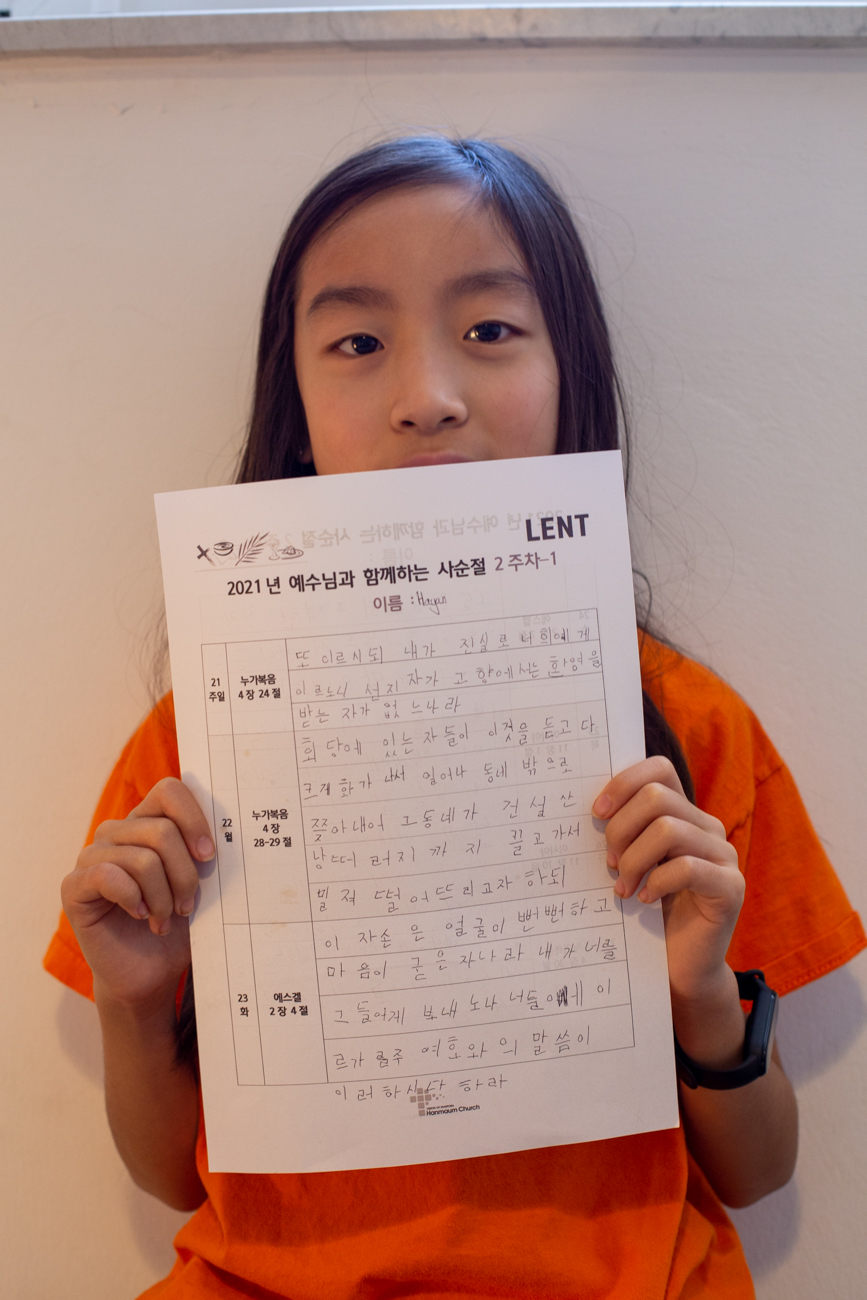 LENT
2021년 예수님과 함께하는 사순절 2주차-1
이름 : Hayun
21 주일
누가복음 4장 24절
또 이르시되 내가 진실로 너희에게
이르노니 선지자가 고향에서는 환영을
받는 자가 없느니라
22 월
누가복음 4장 28-29절
회당에 있는 자들이 이것을 듣고 다
크게 화가 나서 일어나 동네 밖으로
쫓아내어 그동네가 건설 산
낭떠러지까지 끌고가서
밀쳐 떨어뜨리고자 하되
23 화
에스겔 2장 4절
이 자손은 얼굴이 뻔뻔하고
마음이 굳은 자니라 내가 너를
그들에게 보내노니 너는 이
르기를 주 여호와의 말씀이
이러하시다 하라
Hanmaum Church